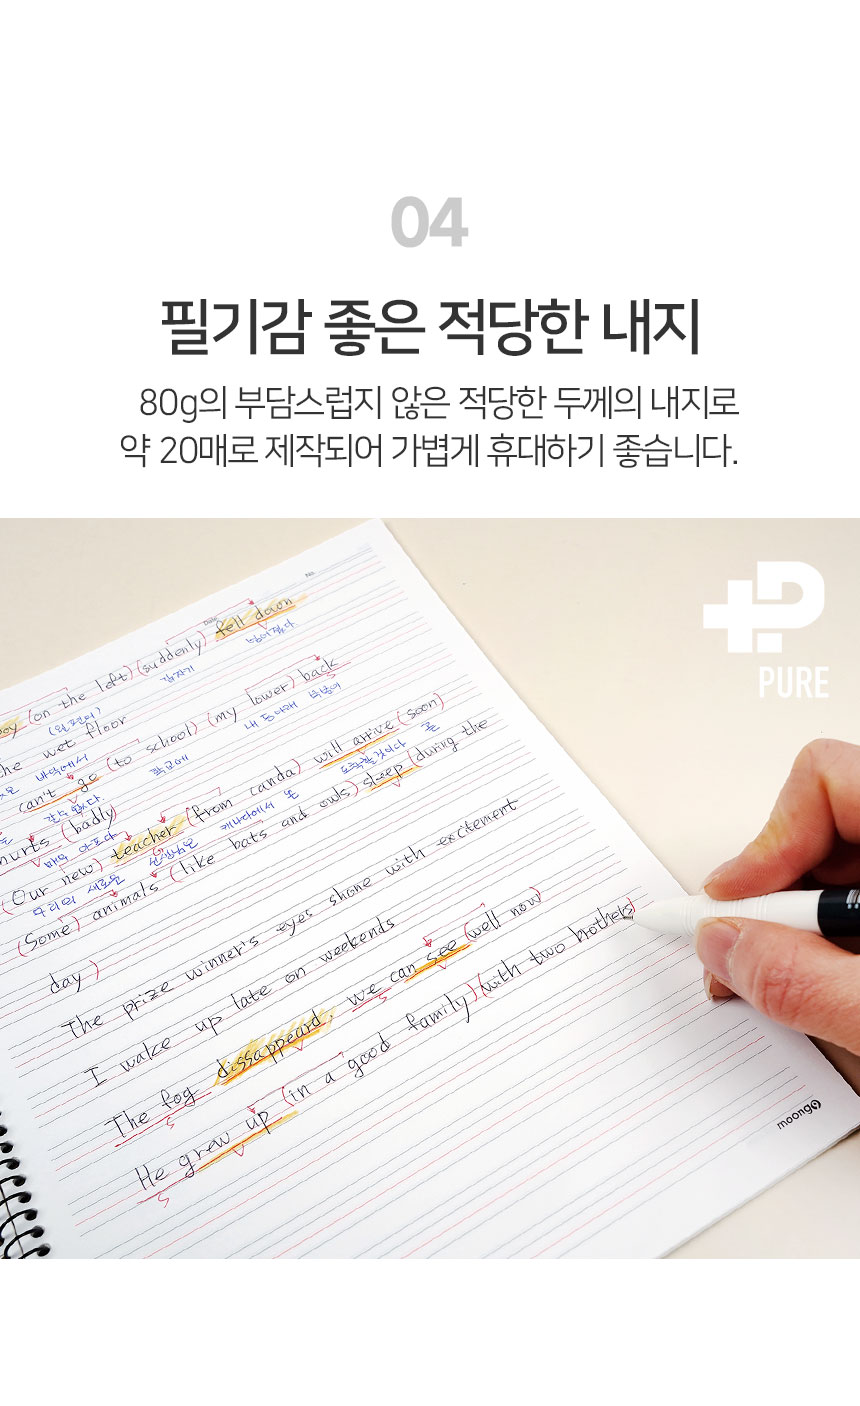 04
필기감 좋은 적당한 내지
80g의 부담스럽지 않은 적당한 두께의 내지로
약 20매로 제작되어 가볍게 휴대하기 좋습니다.
P
PURE
No.
Date
boy (on the left) (suddenly) fell down
(왼편에) 갑자기 넘어졌다
the wet floor (my lower) back
바닥에서 내 등아래 부분이
can't go (to school) will arrive (soon)
갈수 없다. 학교에 도착할것이다 곧
hurts (badly)
매우 아프다
(Our new) teacher (from canda) sleep (during the
우리의 새로운 선생님은 캐나다에서 온
(Some) animals (like bats and owls)
day)
The prize winner's eyes shone with excitement
I wake up late on weekends
The fog dissappeard we can see (well now)
He grew up (in a good family) (with two brothers)
moong9